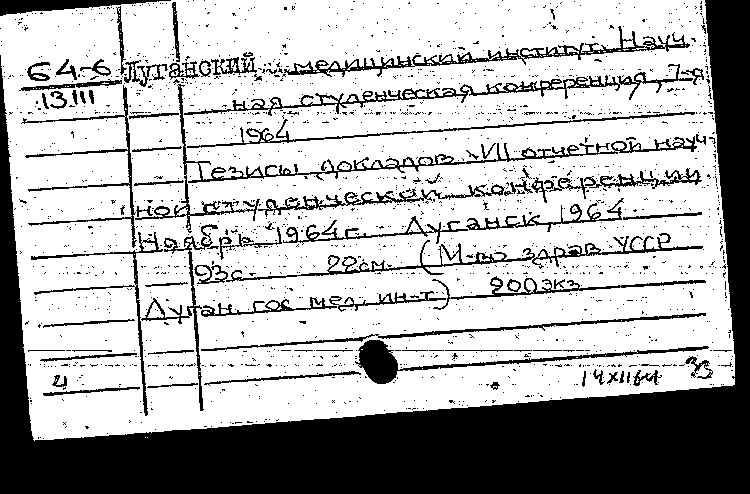 64-6 Луганский медицинский институт. Науч
13111 ная студенческая конференция, 7-я
1964
Тезисы докладов VII отчетной науч
ной студенческой конференции
Ноябрь 1964 г. Луганск, 1964
93с. 22см. (М-во здрав УССР
Луган. гос мед. ин-т) 200 экз
21
14 XII 64 33